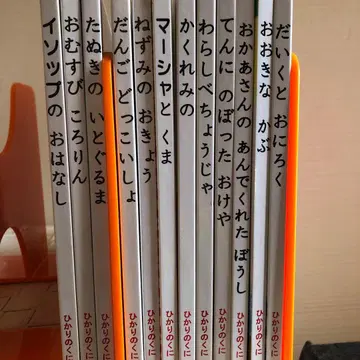 イソップの おはなし
ひかりのくに
おむすび ころりん
ひかりのくに
たぬきの いとぐるま
ひかりのくに
だんご どっこいしょ
ひかりのくに
ねずみの おきょう
ひかりのくに
マーシャと くま
ひかりのくに
かくれみの
ひかりのくに
わらしべちょうじゃ
ひかりのくに
てんに のぼった おけや
ひかりのくに
おかあさんの あんでくれた ぼうし
ひかりのくに
おおきな かぶ
ひかりのくに
だいくと おにろく
ひかりのくに